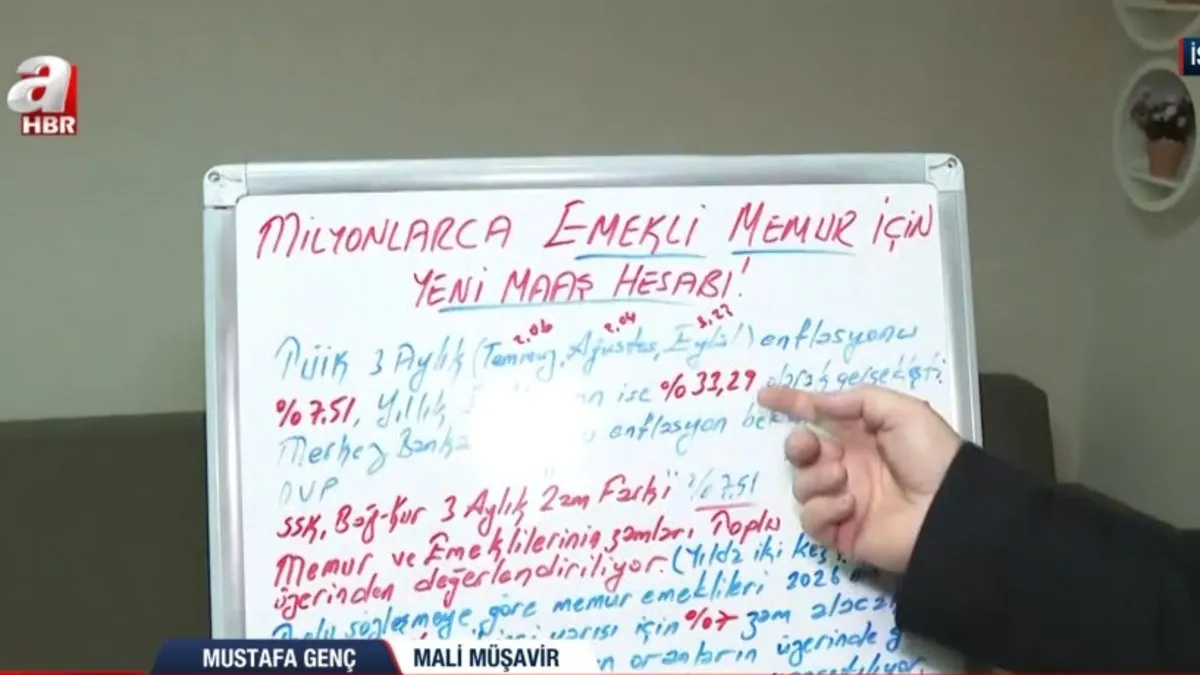 a
HBR
İS
MİLYONLARCA EMEKLİ MEMUR İÇİN
YENİ MAAŞ HESABI!
2,06 2,04 3,23
TÜİK 3 Aylık (Temmuz, Ağustos, Eylül) enflasyonu
%7.51, Yıllık ise %33,29 olarak gerçekleşti.
Merkez Banka enflasyon
OVP
SSK, Bağ-Kur 3 Aylık "Zam Farkı" %7.51
Memur ve Emeklilerinin zamları Toplu
üzerinden değerlendiriliyor. (Yılda iki kez
sözleşmeye göre memur emeklileri 2026
yarısı için %7 zam alacak
oranların üzerinde
MUSTAFA GENÇ MALİ MÜŞAVİR